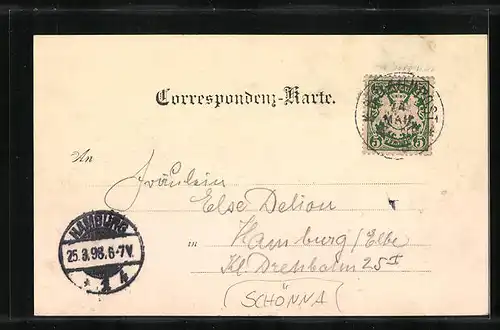 Correspondenz-Karte.
An
Fräulein
Else Delion
in Hamburg/Elbe
Kl. Drehbahn 25 I
(SCHÖNNA)
HAMBURG
25.3.98.6-7V.
* 1 4
5 5